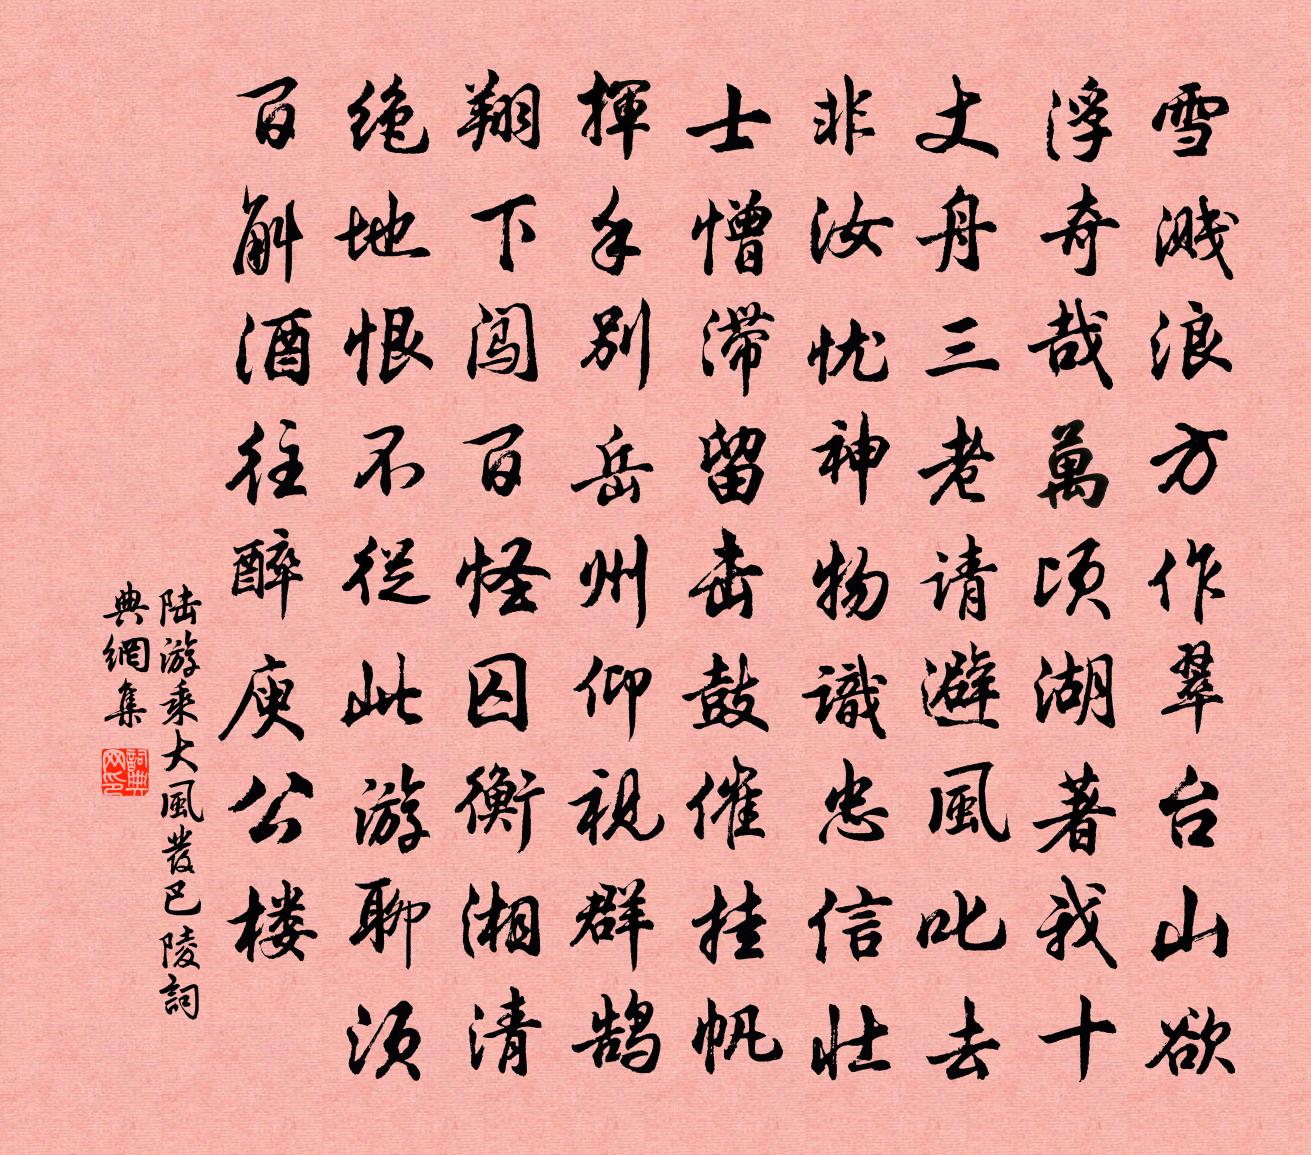 雪溅浪方作翠台山欲
浮奇哉萬顷湖著我十
丈舟三老请避風叱去
非汝忧神物識忠信壮
士憎滞留击鼓催挂帆
揮手别岳州仰視群鹄
翔下闯百怪囚衡湘清
绝地恨不從此游聊须
百斛酒往醉庾公楼
陆游乘大風發巴陵詞
典網集
詞典网印